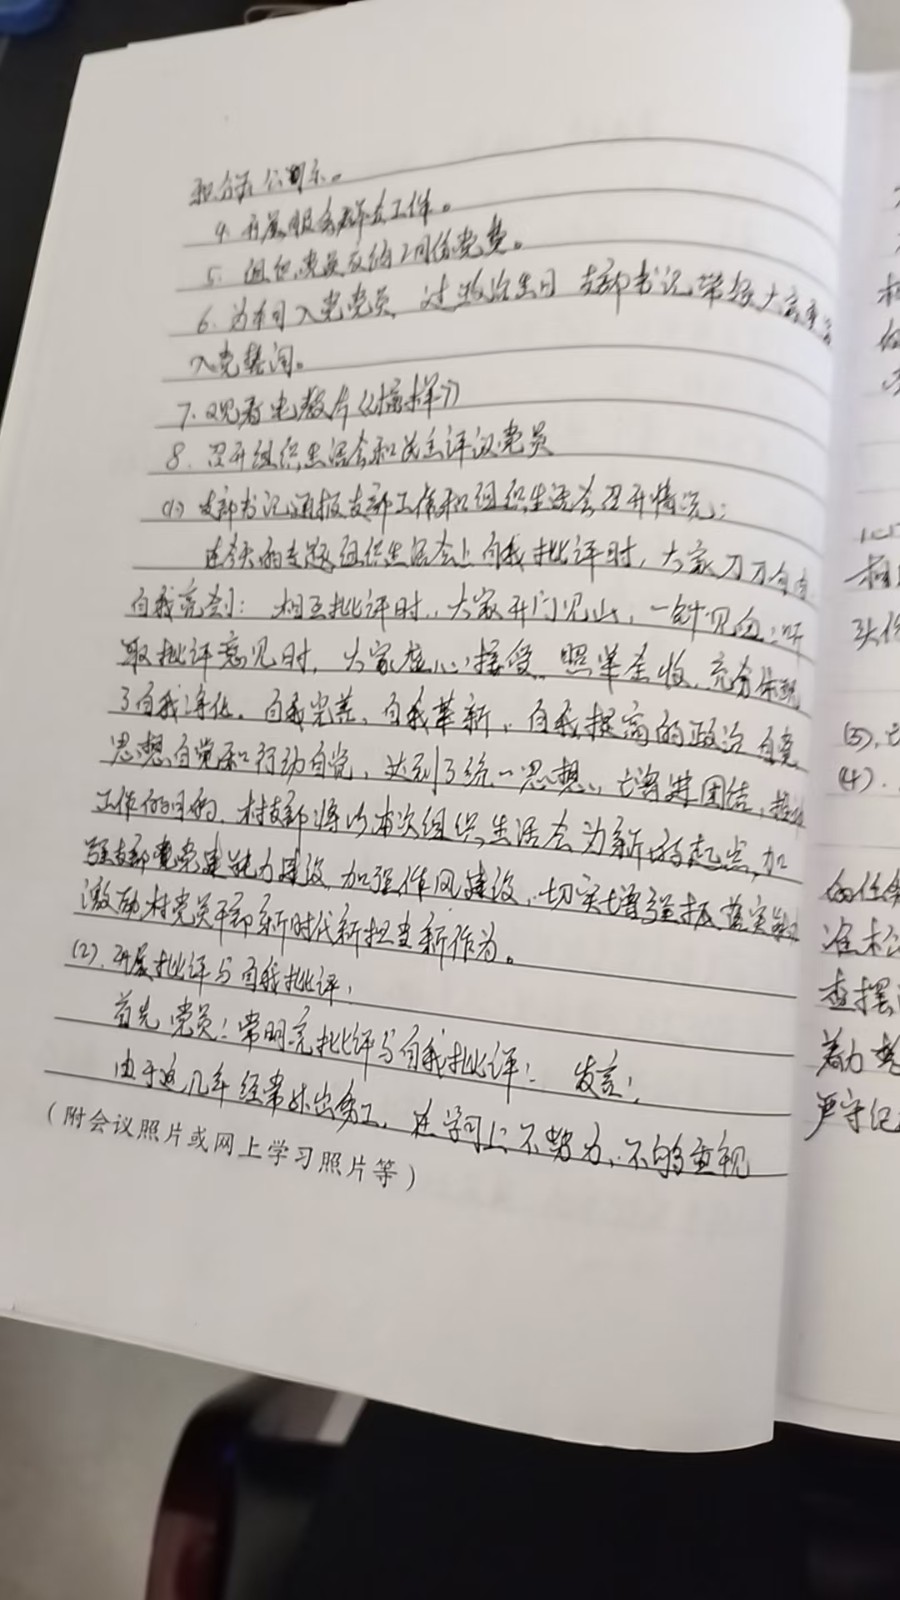 和公示公开。
4. 开展服务群众工作。
5. 组织党员交纳2月份党费。
6. 为本月入党党员过政治生日 支部书记带领大家重温
入党誓词。
7. 观看电教片《榜样7》
8. 召开组织生活会和民主评议党员
(1) 支部书记通报支部工作和组织生活会召开情况:
在今天的专题组织生活会上自我批评时,大家刀刃向内
自我亮剑: 相互批评时,大家开门见山,一针见血;听
取批评意见时,大家虚心接受、照单全收,充分体现
了自我净化、自我完善、自我革新、自我提高的政治自觉
思想自觉和行动自觉,达到了统一思想、增进团结,
工作的目的,村支部将以本次组织生活会为新的起点,加
强支部党建能力建设,加强作风建设,切实增强抓落实
激励村党员干部新时代新担当新作为。
(2). 开展批评与自我批评:
首先 党员: 常明亮批评与自我批评: 发言:
由于这几年经常外出务工,在学习上不努力,不够重视
(附会议照片或网上学习照片等)
(3),
(4).
查摆
着力
严守纪